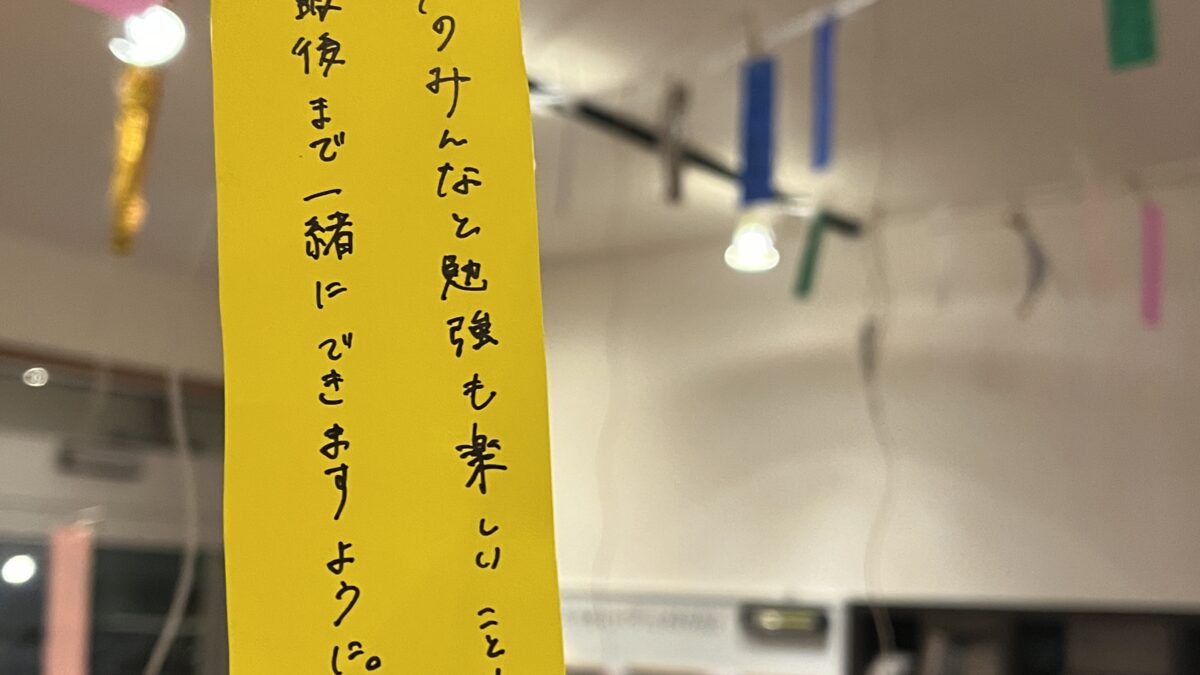 のみんなと勉強も楽しいこと
最後まで一緒にできますように。